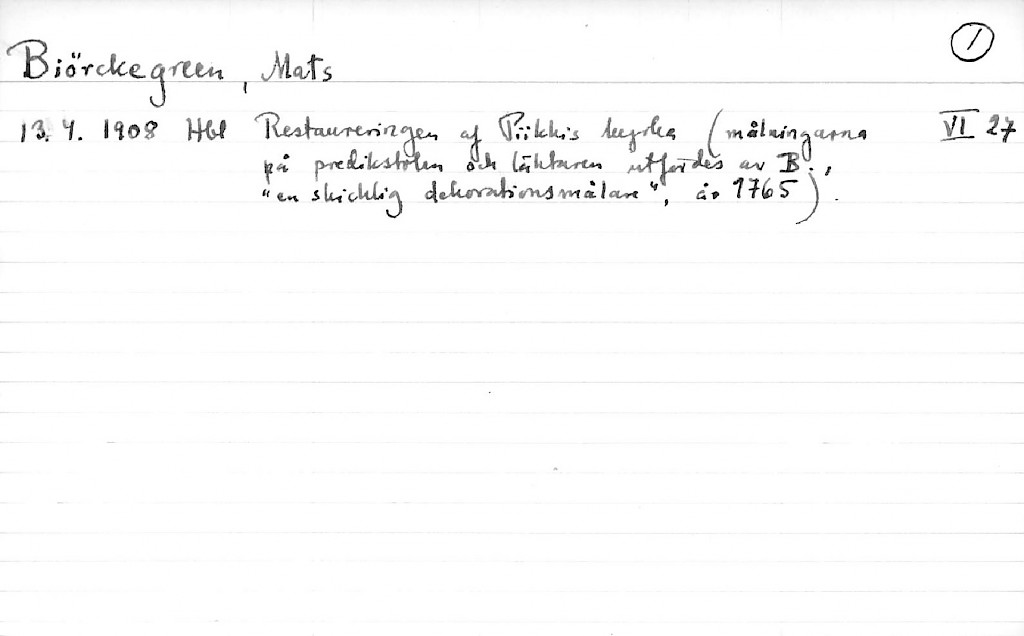 1
Biörckegreen, Mats
13.4. 1908 Hbl Restaureringen af Piikkis kyrka (målningarna VI 27
på predikstolen och läktaren utfördes av B.,
"en skicklig dekorationsmålare", år 1765).